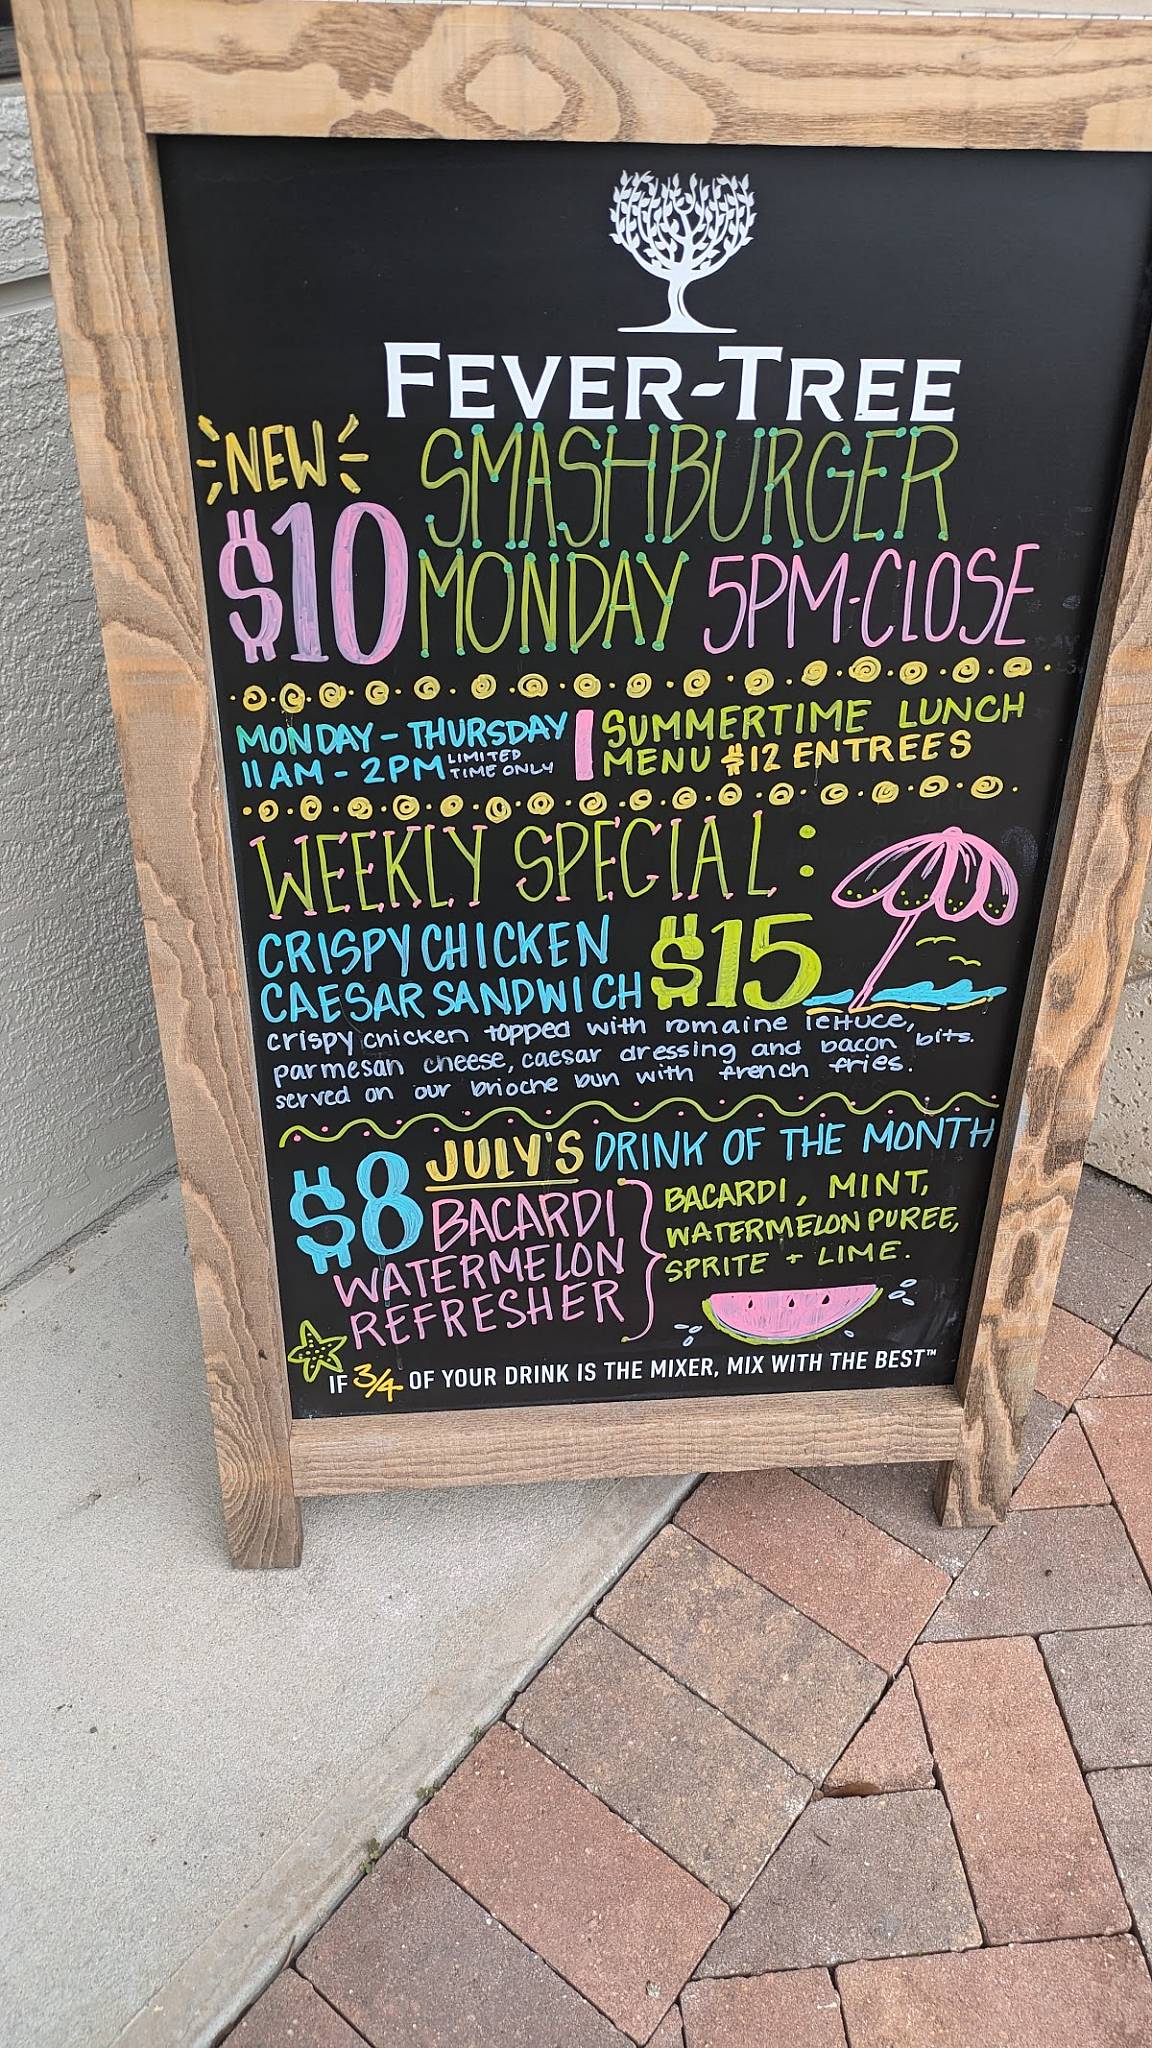 FEVER-TREE
NEW SMASHBURGER
$10 MONDAY 5PM-CLOSE
MONDAY - THURSDAY
11AM - 2PM LIMITED TIME ONLY
SUMMERTIME LUNCH
MENU $12 ENTREES
WEEKLY SPECIAL:
CRISPY CHICKEN
CAESAR SANDWICH $15
crispy chicken topped with romaine lettuce,
parmesan cheese, caesar dressing and bacon bits.
served on our brioche bun with french fries.
$8 JULY'S DRINK OF THE MONTH
BACARDI
WATERMELON
REFRESHER
BACARDI, MINT,
WATERMELON PUREE,
SPRITE + LIME.
IF 3/4 OF YOUR DRINK IS THE MIXER, MIX WITH THE BEST™